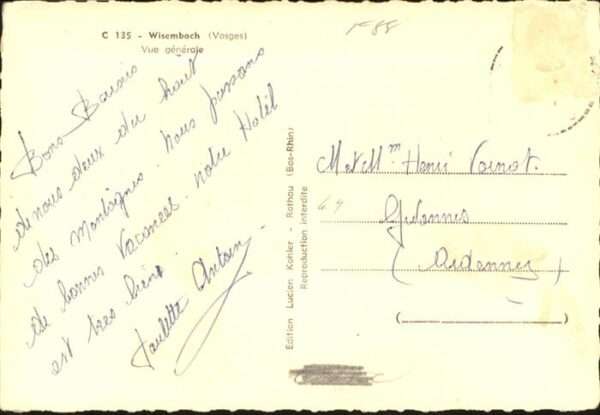 C 135 - Wisembach (Vosges)
Vue générale
1F 88
Bons Baisers
de nous deux du haut
des Montagnes. nous passons
de bonnes Vacances. notre Hotêl
est très bien.
Paulette Antoin
Edition Lucien Kohler - Rothau (Bas-Rhin)
Reproduction interdite
M et Mme Henri
(Ardennes)